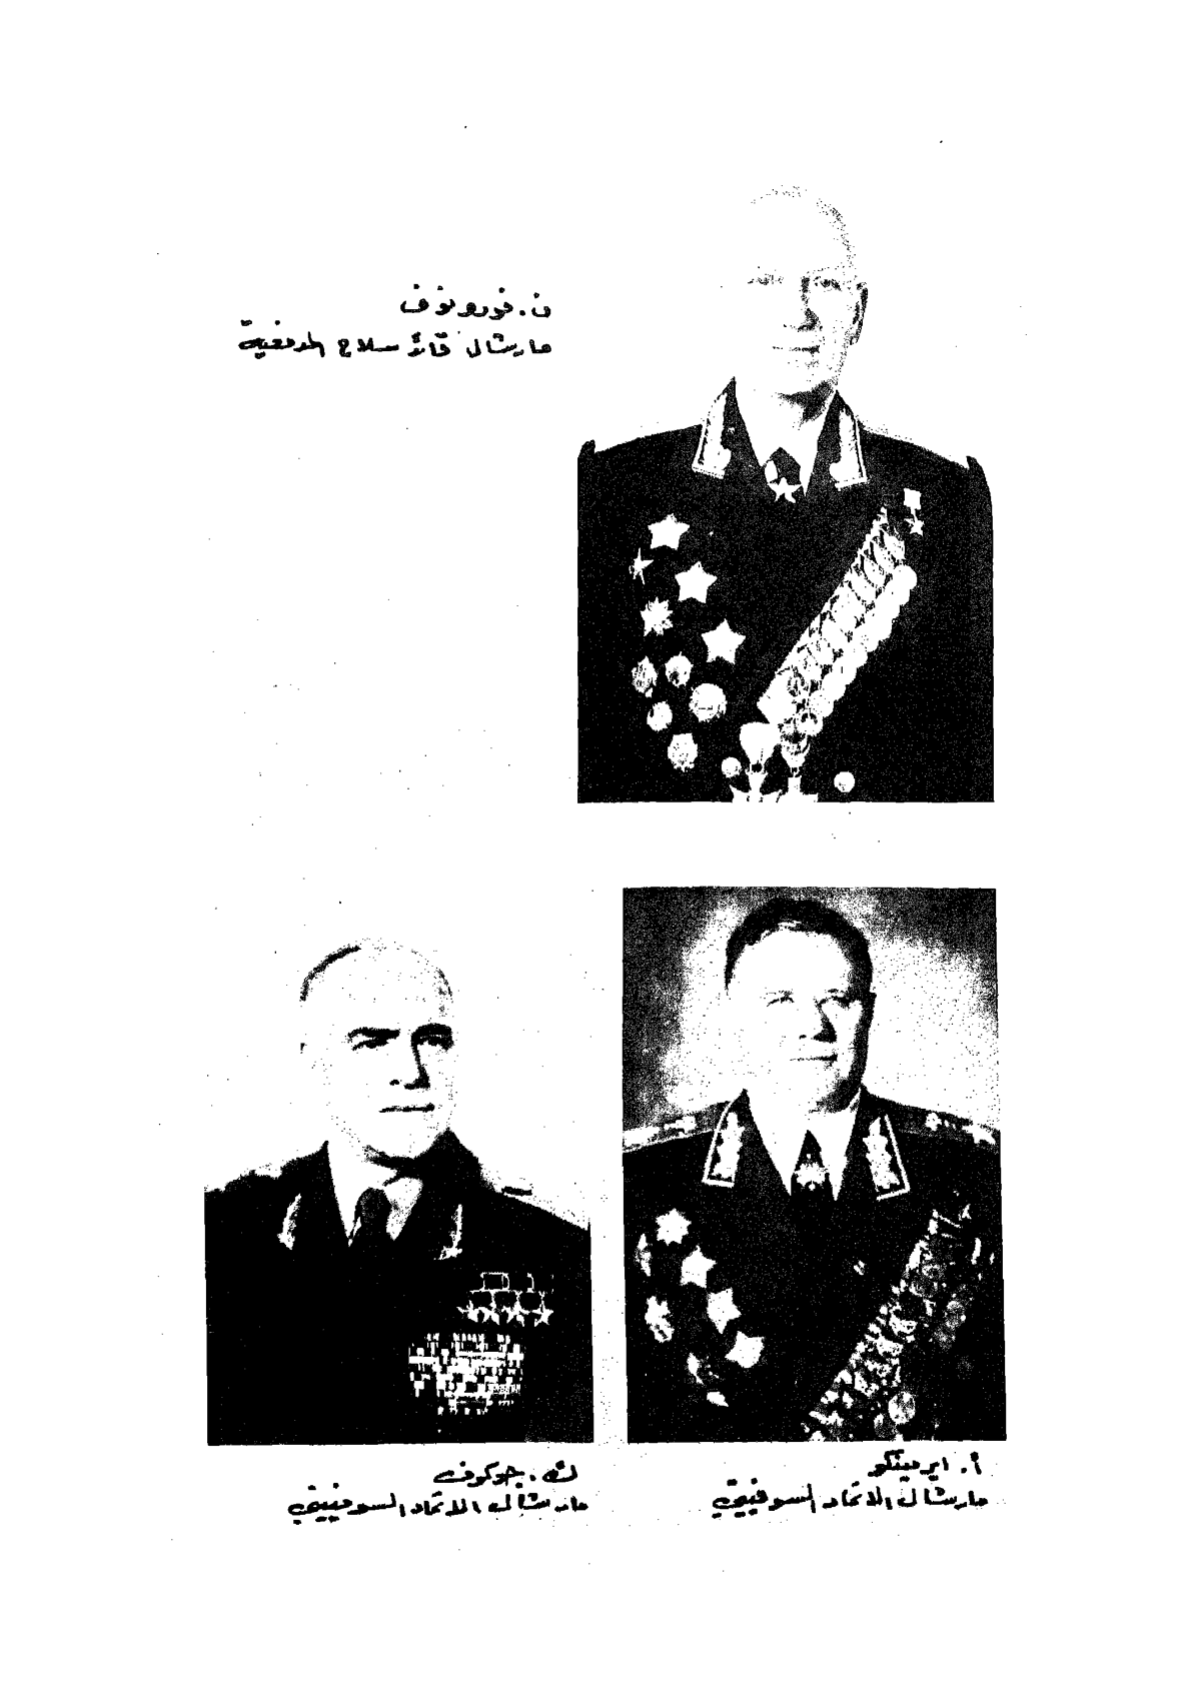 ن. فورونوف
مارشال قائد سلاح المدفعية
أ. ايرمينكو
مارشال الاتحاد السوفييتي
ك. جوكوف
مارشال الاتحاد السوفييتي